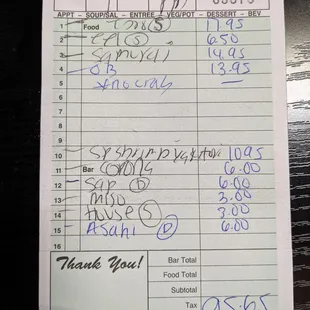 APPT - SOUP/SAL - ENTREE - VEG/POT - DESSERT - BEV
1 Food (S) 17.95
2 (S) 6.50
3 Samurai 14.95
4 OB 13.95
5 *no crab
6
7
8
9
10 10.95
11 Bar Corona 6.00
12 Sap 6.00
13 Miso 3.00
14 House (S) 3.00
15 Asahi 6.00
16
Thank You!
Bar Total
Food Total
Subtotal
Tax
95.65